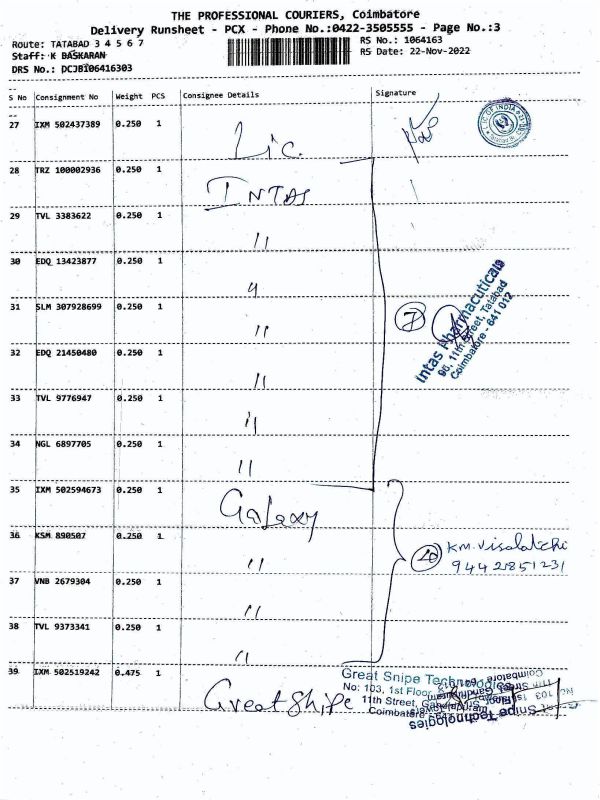 THE PROFESSIONAL COURIERS, Coimbatore
Delivery Runsheet - PCX - Phone No.:0422-3505555 - Page No.:3
Route: TATABAD 3 4 5 6 7
RS No.: 1064163
Staff: K BASKARAN
RS Date: 22-Nov-2022
DRS No.: DCJB106416303
S No Consignment No Weight PCS Consignee Details Signature
27 IXM 502437389 0.250 1
Lic.
28 TRZ 100002936 0.250 1
INTAS
29 TVL 3383622 0.250 1
"
30 EDQ 13423877 0.250 1
"
31 SLM 307928699 0.250 1
"
32 EDQ 21450480 0.250 1
"
33 TVL 9776947 0.250 1
"
34 NGL 6897705 0.250 1
"
7
Intas Pharmaceuticals
95, 11th Street, Tatabad
Coimbatore - 641 012
35 IXM 502594673 0.250 1
Galaxy
36 KSM 890507 0.250 1
"
37 VNB 2679304 0.250 1
"
38 TVL 9373341 0.250 1
"
KM. Visalatchi
9442851231
39 IXM 502519242 0.475 1
Great Snipe
Great Snipe Technologies
No: 103, 1st Floor,
11th Street,
Coimbatore